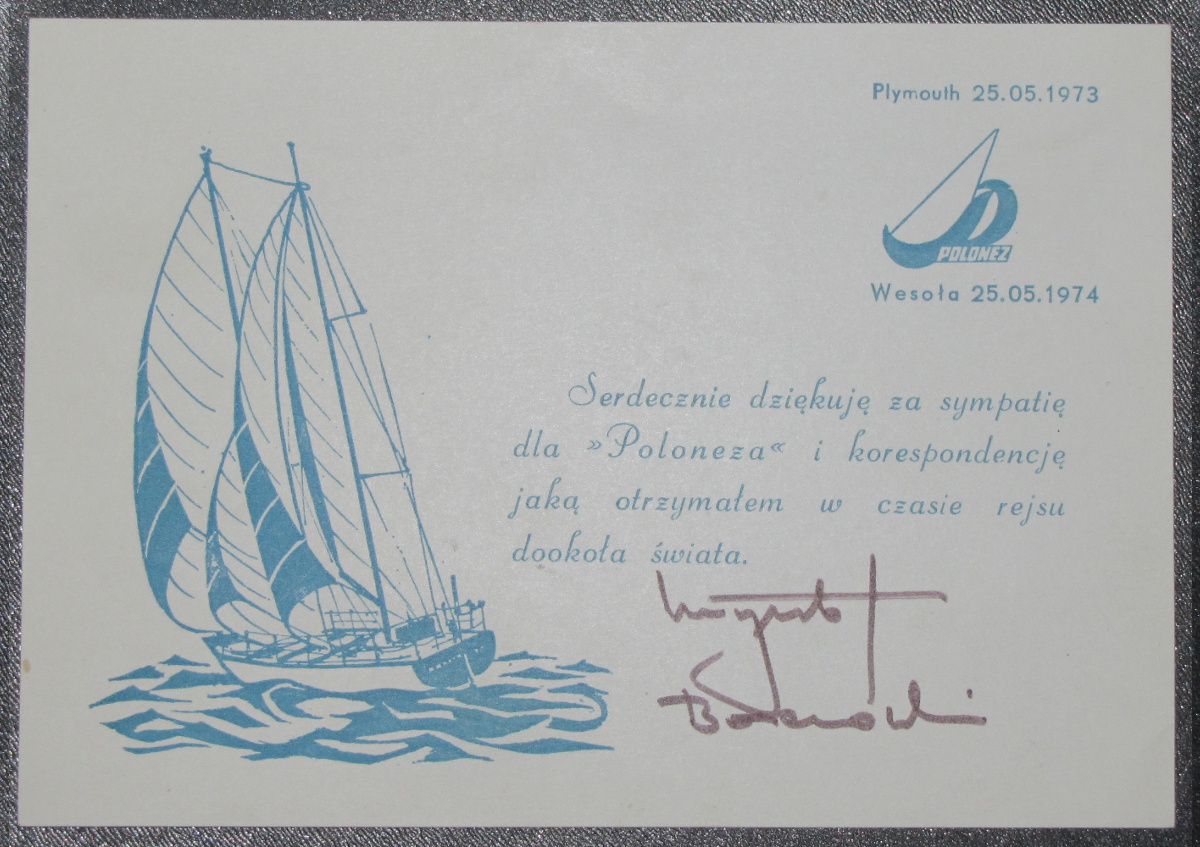 Plymouth 25.05.1973
POLONEZ
Wesoła 25.05.1974
Serdecznie dziękuję za sympatię
dla »Poloneza« i korespondencję
jaką otrzymałem w czasie rejsu
dookoła świata.